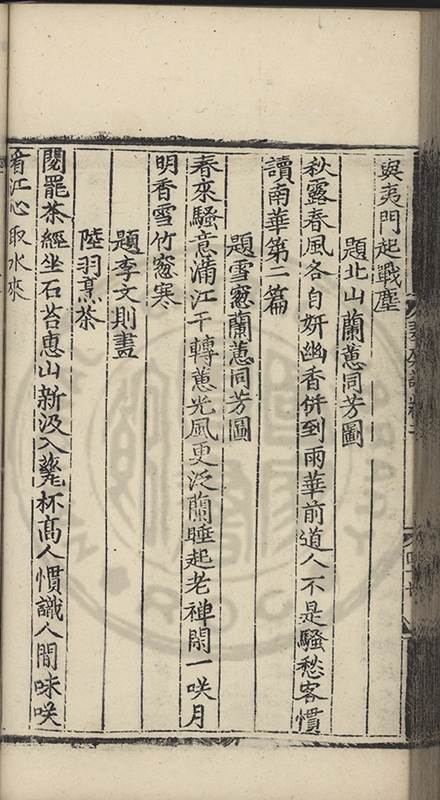 與夷門起戰塵
題北山蘭蕙同芳圖
秋露春風各自妍幽香併到雨華前道人不是騷愁客慣
讀南華第二篇
題雪窻蘭蕙同芳圖
春來騷意滿江干轉蕙光風更泛蘭睡起老禪閒一咲月
明香雪竹窻寒
題李文則畫
陸羽烹茶
閱罷茶經坐石苔惠山新汲入甆杯髙人慣識人間味咲
看江心取水來